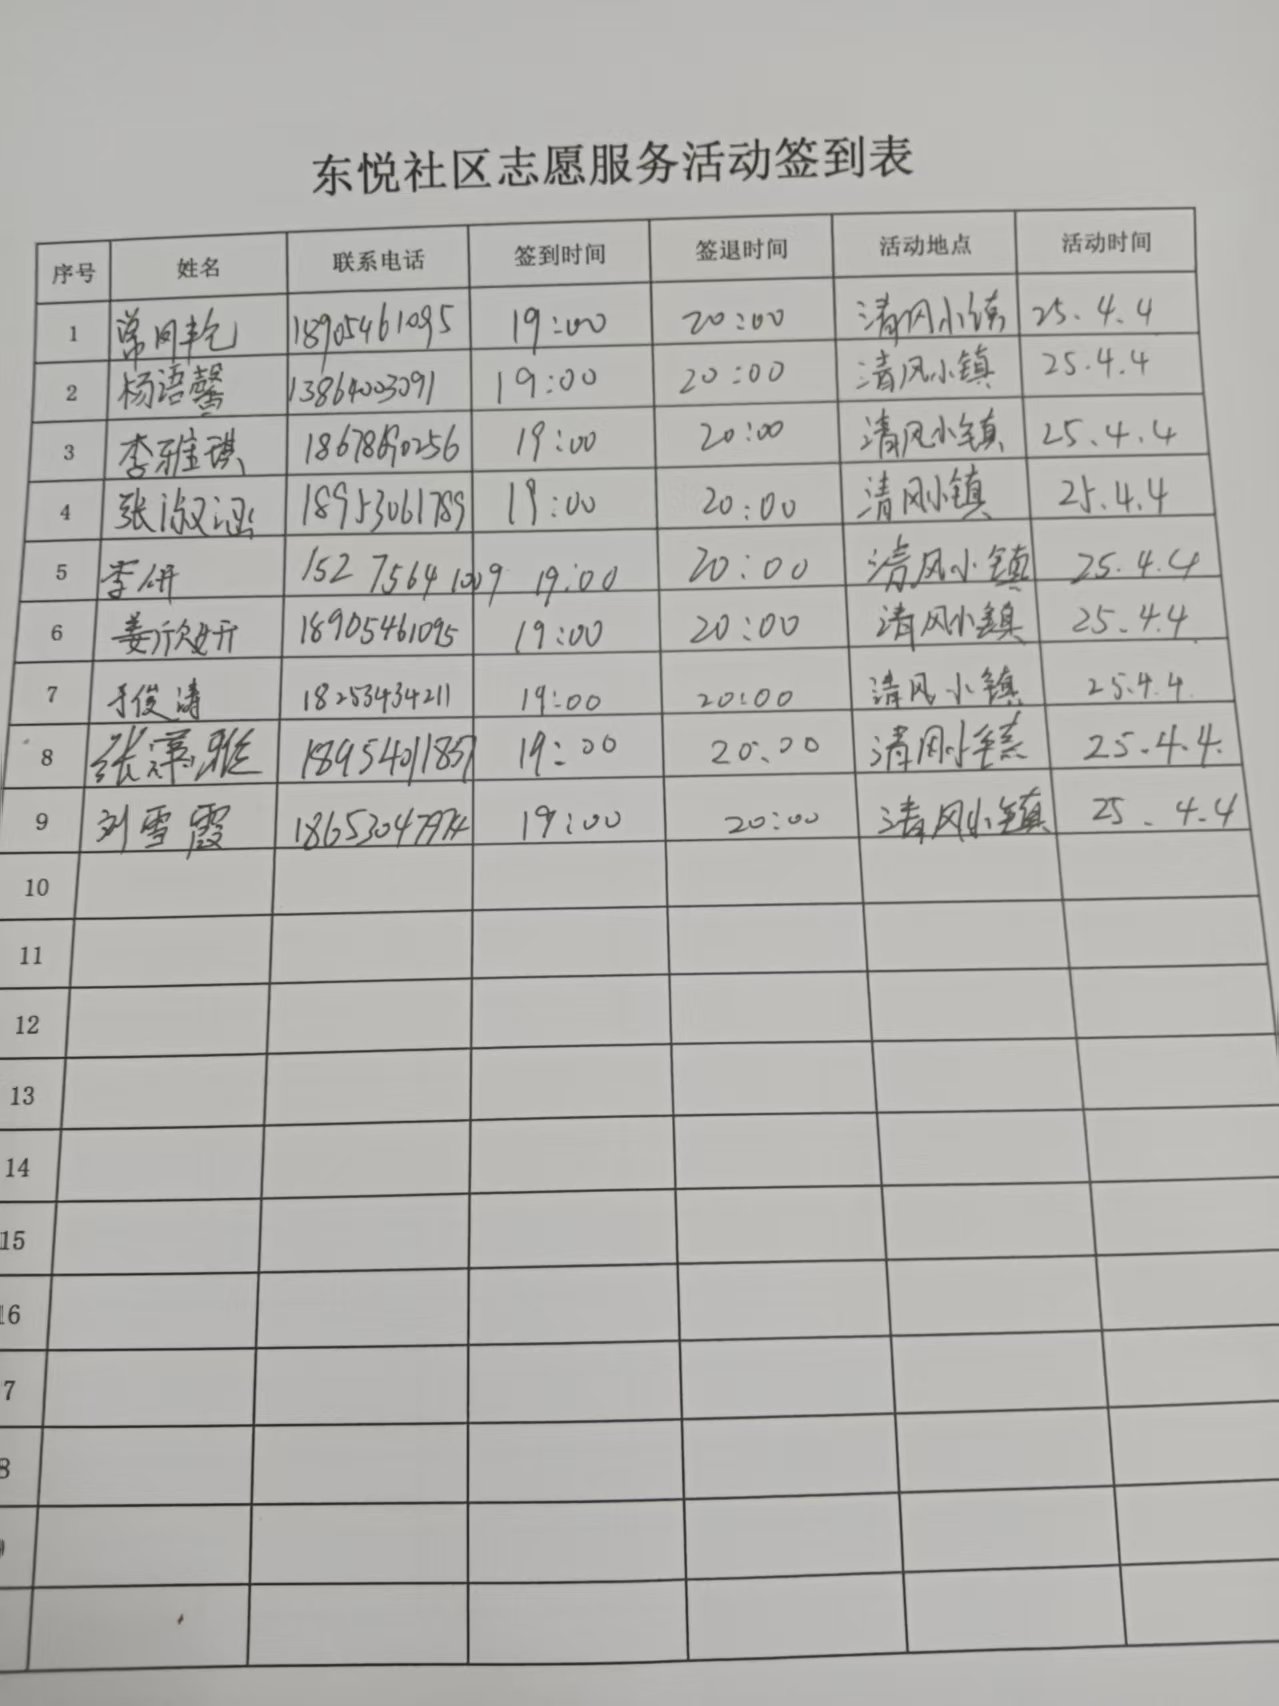 东悦社区志愿服务活动签到表
序号 姓名 联系电话 签到时间 签退时间 活动地点 活动时间
1 18905461095 19:00 20:00 清风小镇 25.4.4
2 杨语馨 13864003091 19:00 20:00 清风小镇 25.4.4
3 李雅琪 19:00 20:00 清风小镇 25.4.4
4 张淑涵 18953061789 19:00 20:00 清风小镇 25.4.4
5 李妍 15275641009 19:00 20:00 清风小镇 25.4.4
6 姜欣妍 18905461095 19:00 20:00 清风小镇 25.4.4
7 于俊涛 18253434211 19:00 20:00 清风小镇 25.4.4
8 19:00 20:00 清风小镇 25.4.4.
9 刘雪霞 19:00 20:00 清风小镇 25.4.4
10
11
12
13
14
15
16
7
8
9